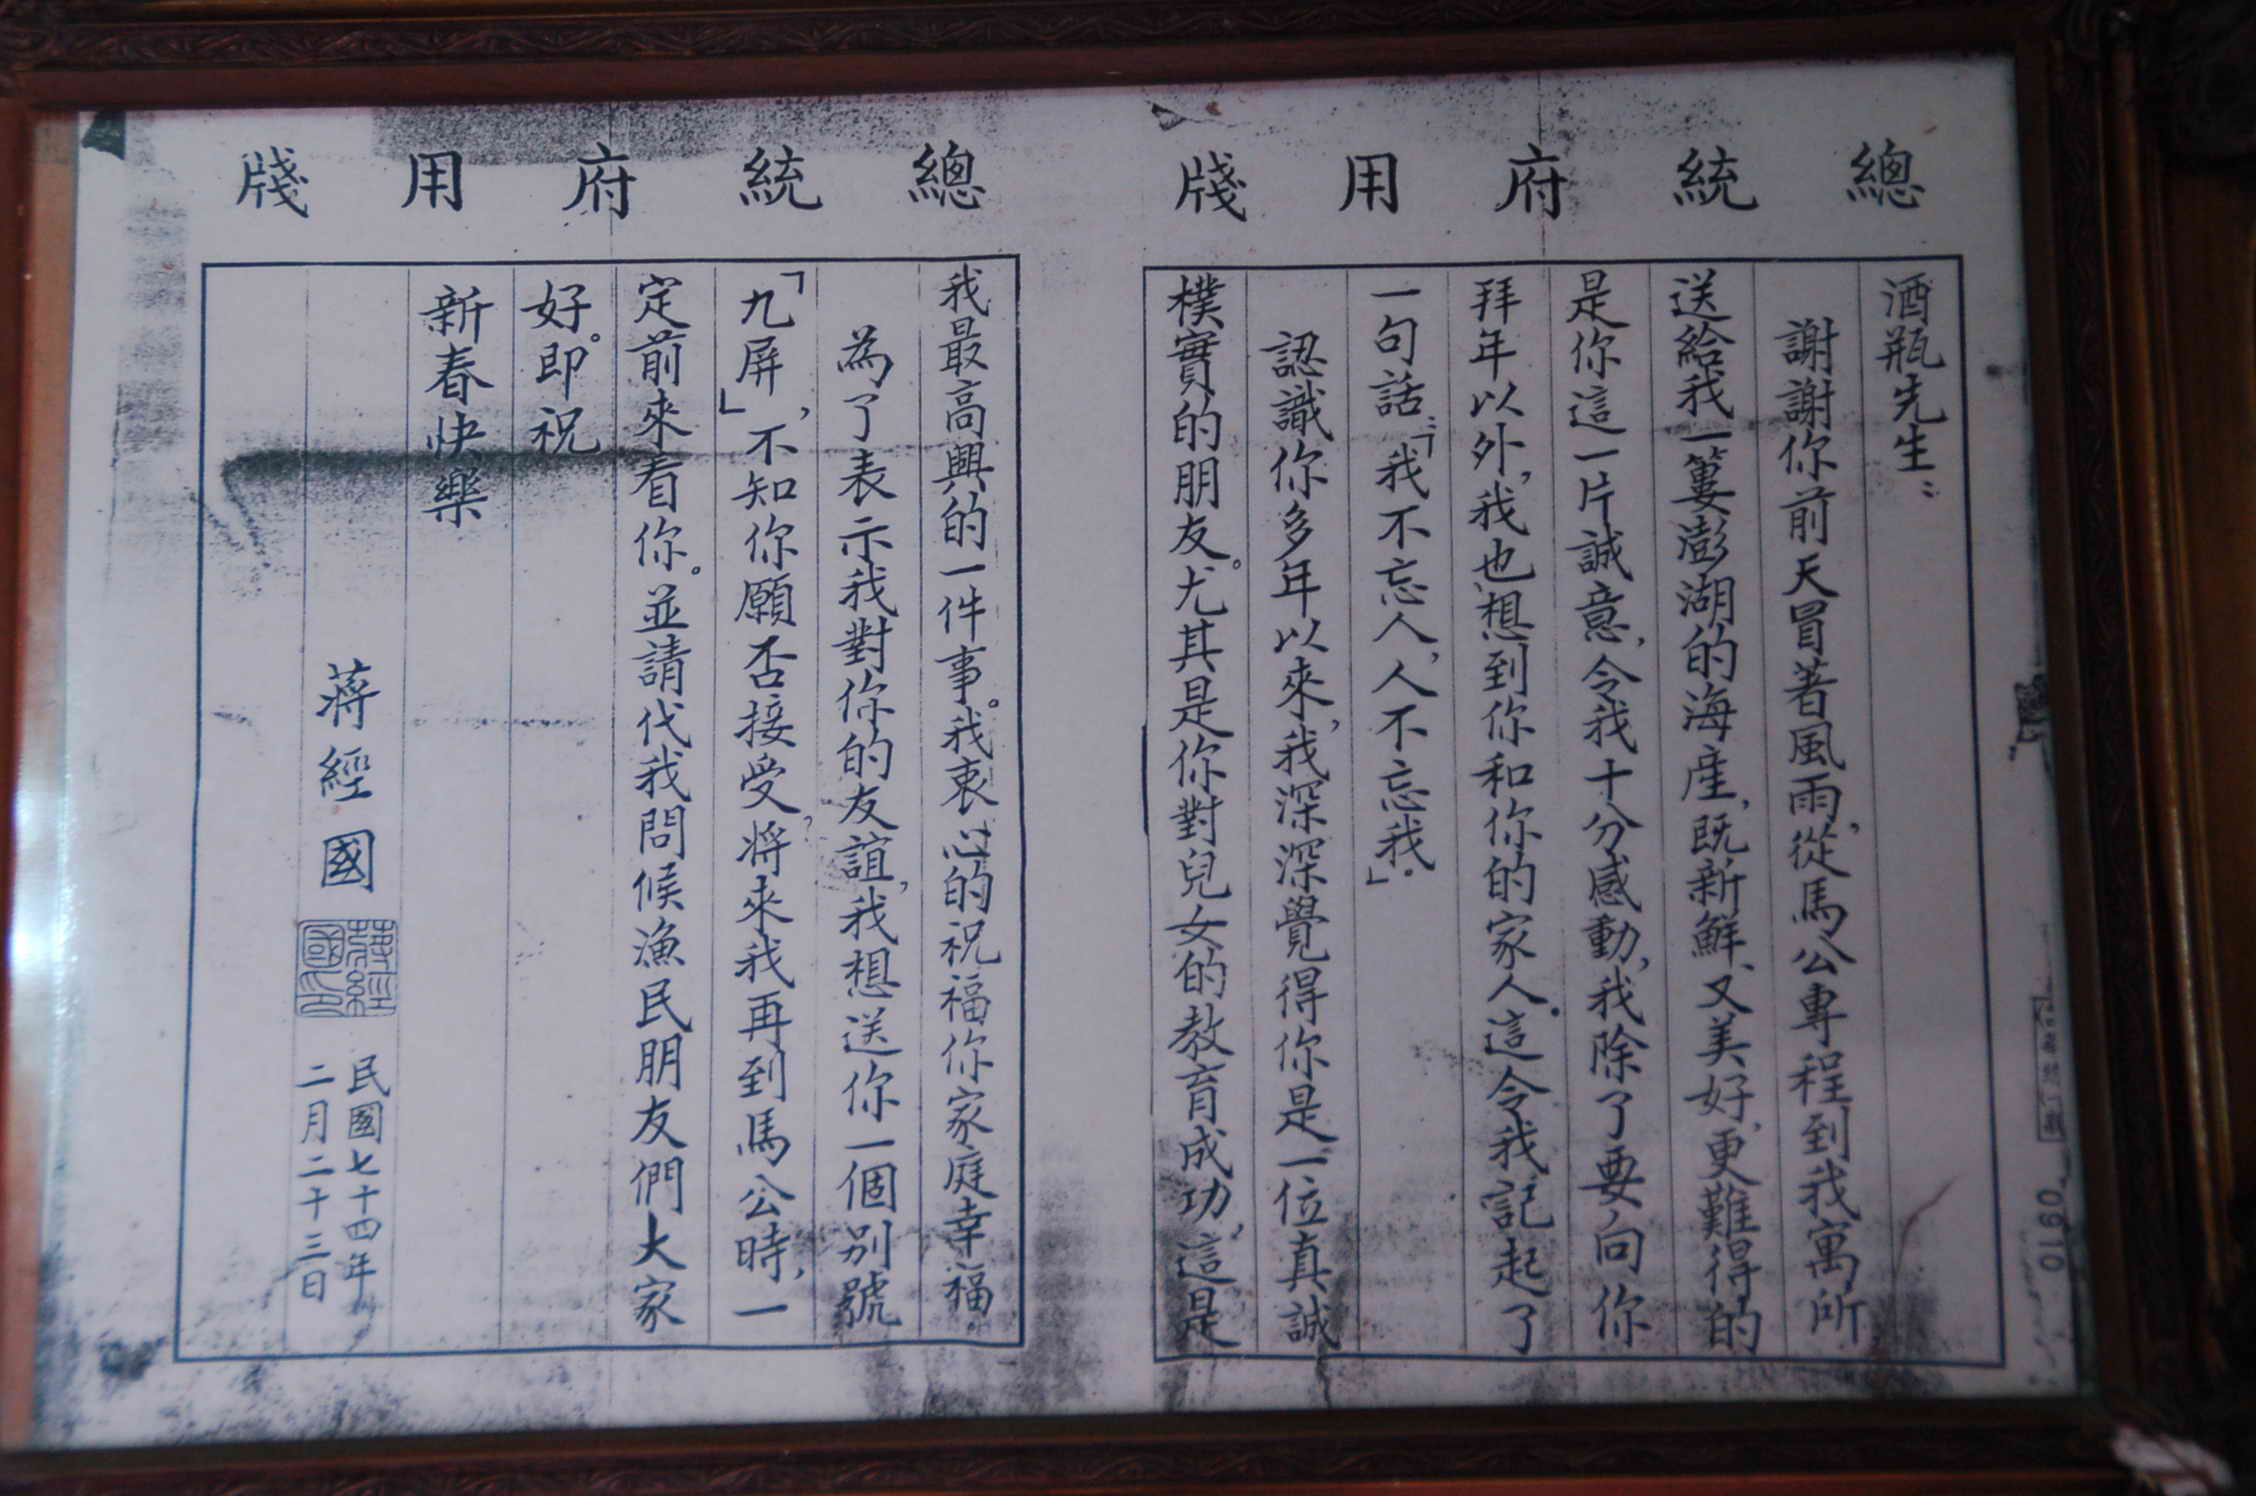 總統府用牋
酒瓶先生：
謝謝你前天冒著風雨，從馬公專程到我寓所
送給我一簍澎湖的海産，既新鮮、又美好，更難得的
是你這一片誠意，令我十分感動，我除了要向你
拜年以外，我也想到你和你的家人。這令我記起了
一句話：「我不忘人，人不忘我。」
認識你多年以來，我深深覺得你是一位真誠
樸實的朋友。尤其是你對兒女的教育成功，這是
總統府用牋
我最高興的一件事。我衷心的祝福你家庭幸福。
為了表示我對你的友誼，我想送你一個別號
「九屏」，不知你願否接受？將來我再到馬公時，一
定前來看你。並請代我問候漁民朋友們大家
好。即祝
新春快樂
蔣經國
蔣經國印
民國七十四年
二月二十三日
0910